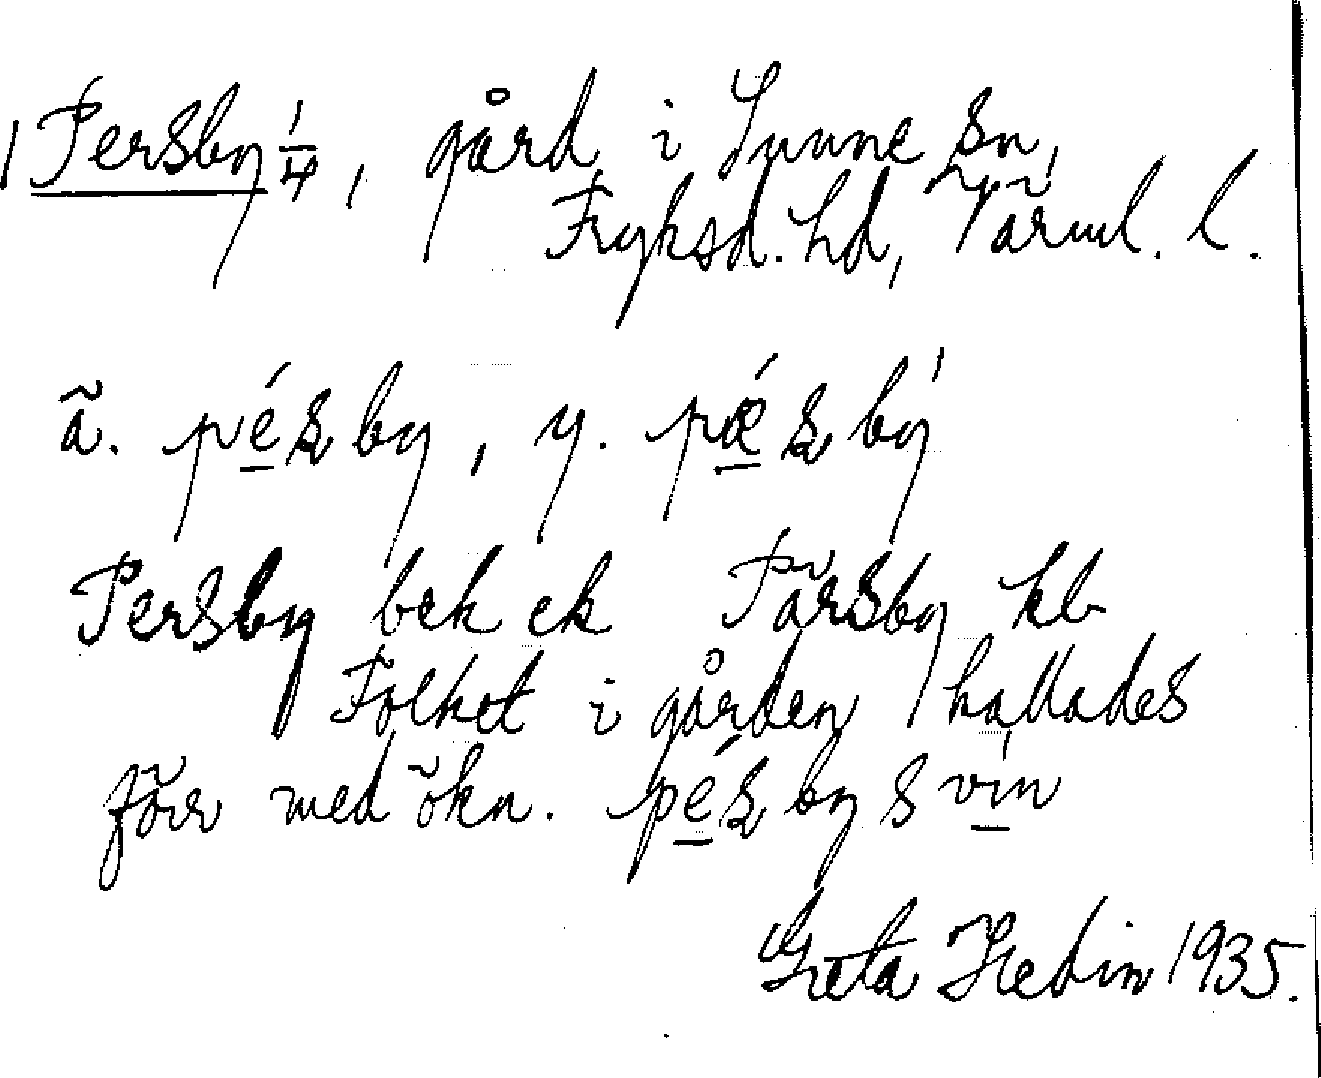 1 Persby 1/4, gård i Sunne sn,
Fryksd. hd, Värml. l.
ä. pésby, y. pǽsby
Persby bek ek Pärsby kb
Folket i gården kallades
förr med ökn. pésbysvin
Greta Hedin 1935.